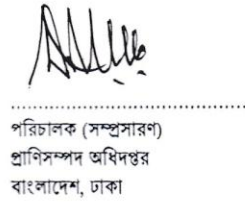 পরিচালক (সম্প্রসারণ)
প্রাণিসম্পদ অধিদপ্তর
বাংলাদেশ, ঢাকা